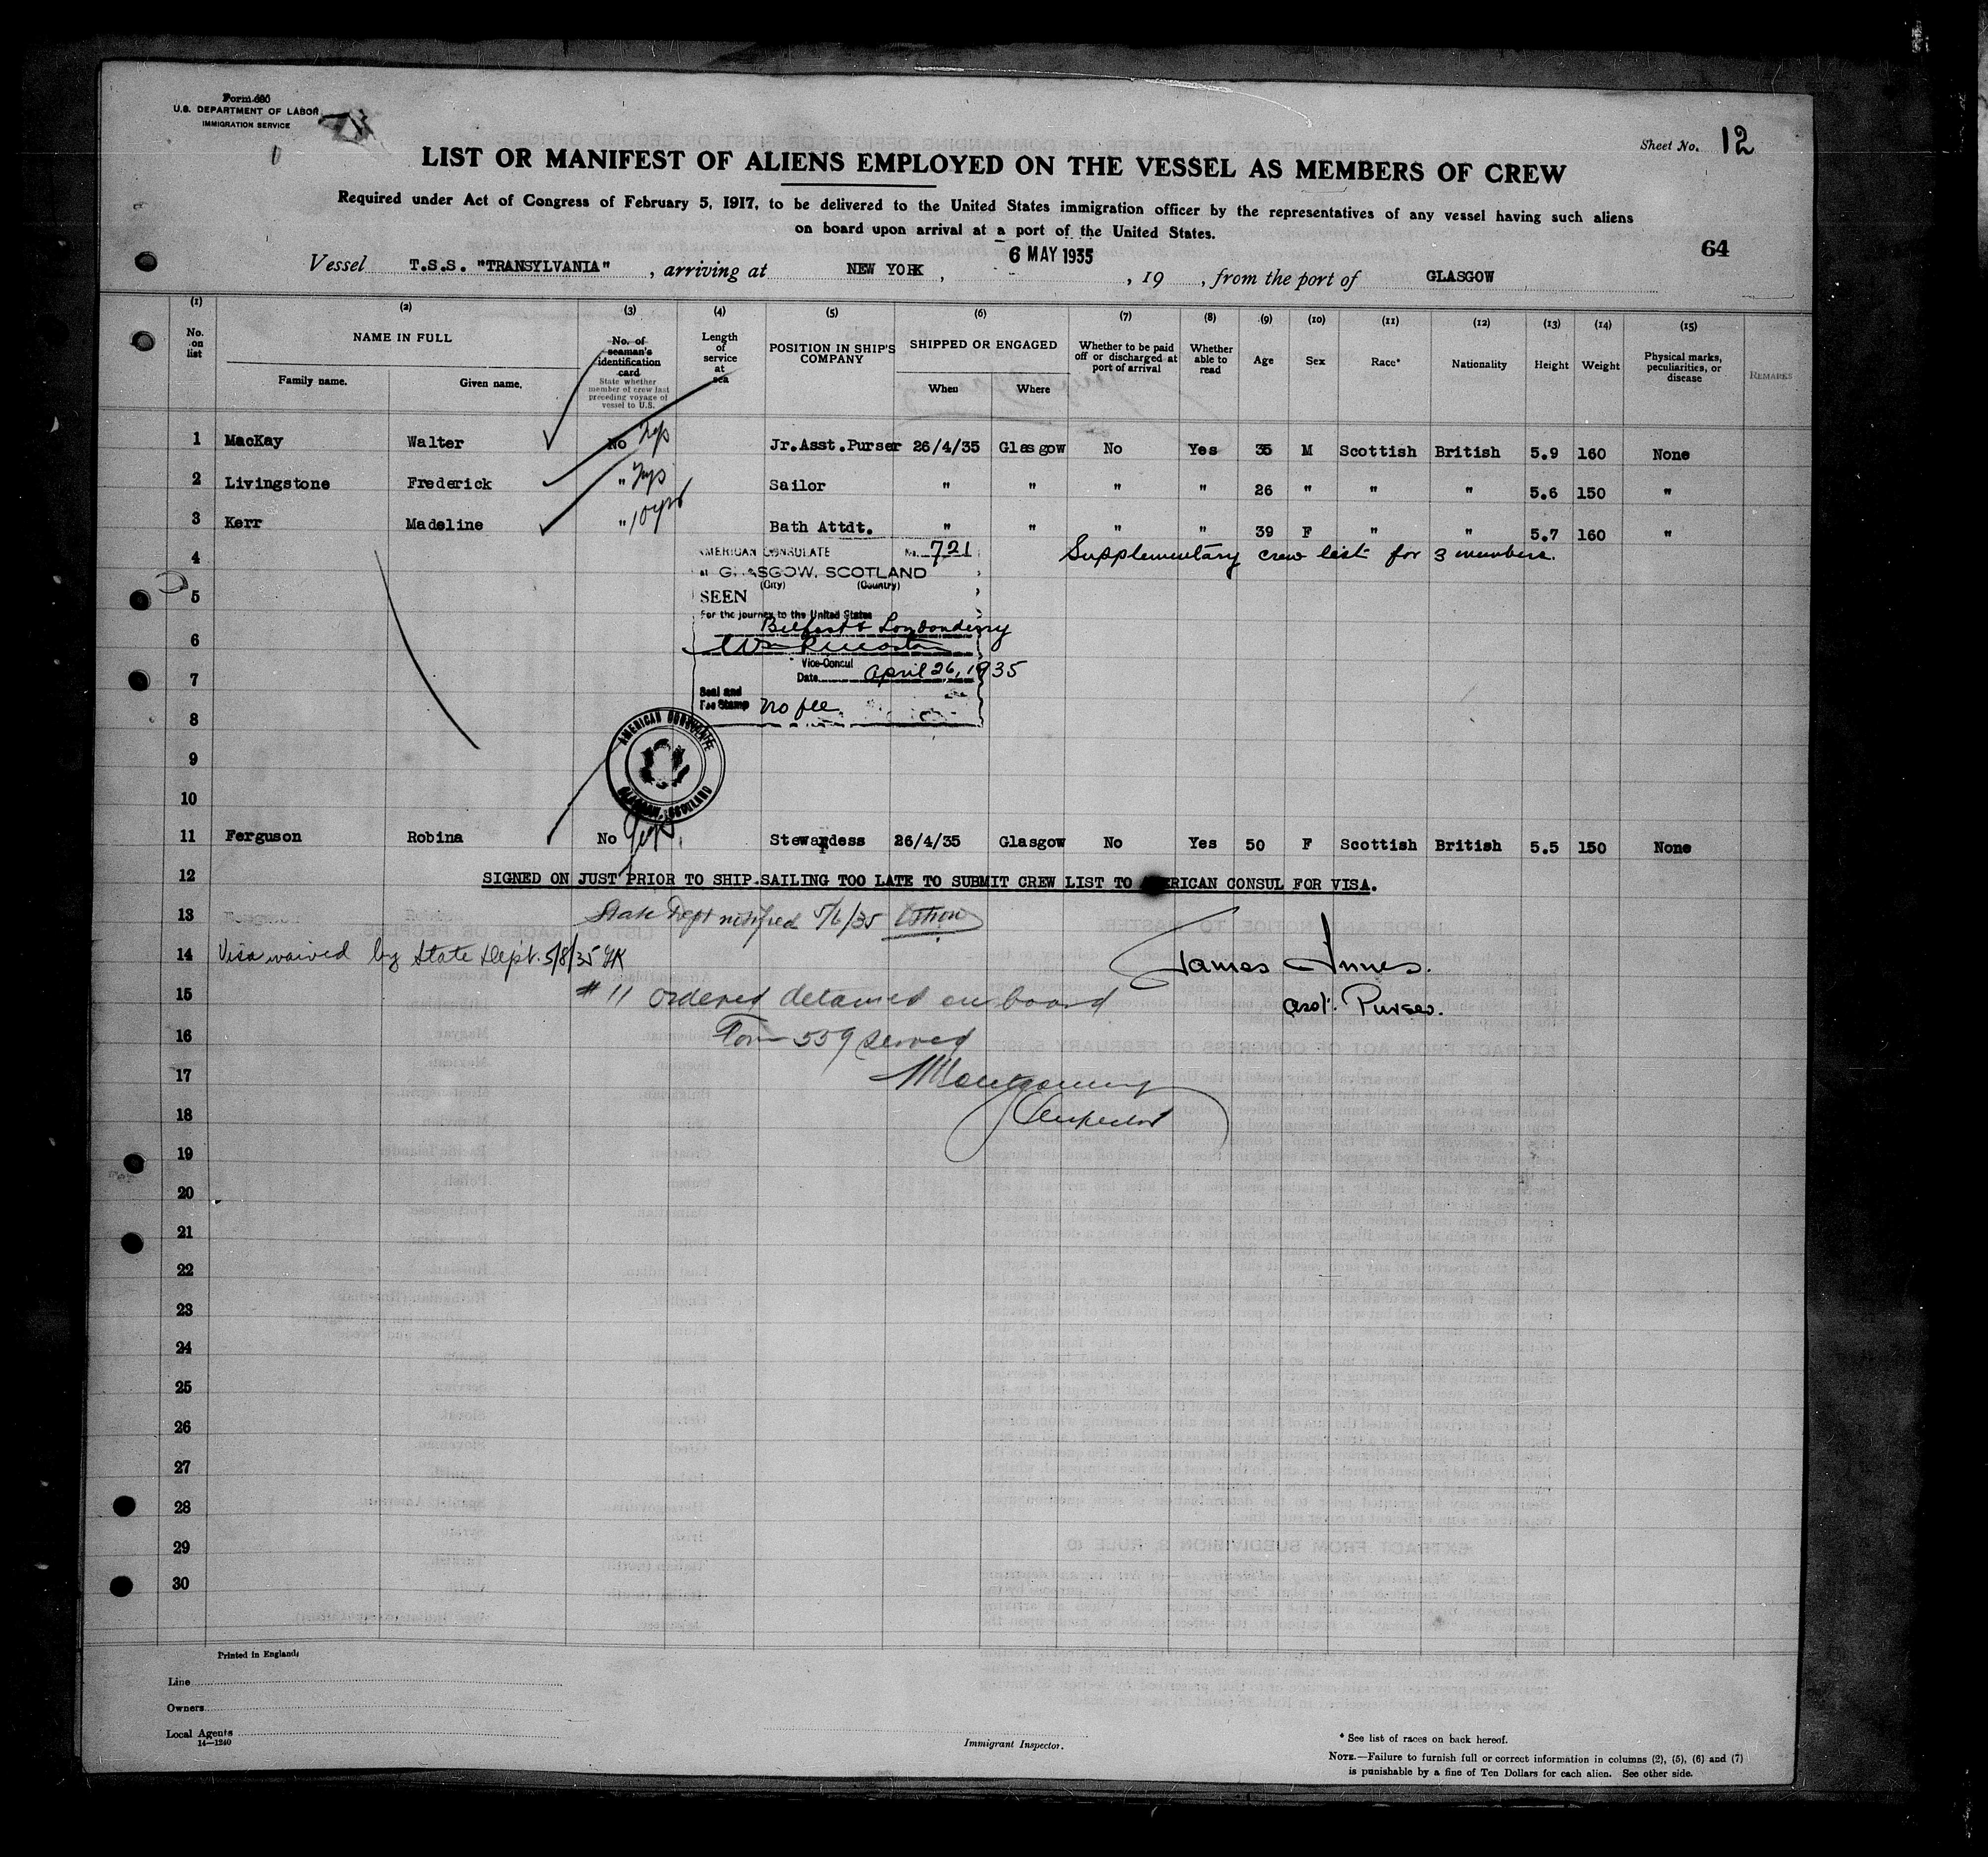 Form 680
U.S. DEPARTMENT OF LABOR
IMMIGRATION SERVICE
Sheet No. 12
LIST OR MANIFEST OF ALIENS EMPLOYED ON THE VESSEL AS MEMBERS OF CREW
Required under Act of Congress of February 5, 1917, to be delivered to the United States immigration officer by the representatives of any vessel having such aliens
on board upon arrival at a port of the United States.
64
Vessel T.S.S. "TRANSYLVANIA", arriving at NEW YORK, 6 MAY 1935, 19 , from the port of GLASGOW
(1) (2) (3) (4) (5) (6) (7) (8) (9) (10) (11) (12) (13) (14) (15)
No. on list
NAME IN FULL
Family name. Given name.
No. of seaman's identification card
State whether member of crew last preceding voyage of vessel to U.S.
Length of service at sea
POSITION IN SHIP'S COMPANY
SHIPPED OR ENGAGED
When Where
Whether to be paid off or discharged at port of arrival
Whether able to read
Age
Sex
Race*
Nationality
Height
Weight
Physical marks, peculiarities, or disease
REMARKS
1 MacKay Walter No Jr.Asst.Purser 26/4/35 Glasgow No Yes 35 M Scottish British 5.9 160 None
2 Livingstone Frederick " Sailor " " " " 26 " " " 5.6 150 "
3 Kerr Madeline " 10 yrs Bath Attdt. " " " " 39 F " " 5.7 160 "
4
AMERICAN CONSULATE No. 721
Supplementary crew list for 3 members.
at GLASGOW, SCOTLAND
(City) (Country)
5
SEEN
For the journey to the United States
Belfast & Londonderry
6
Vice-Consul
7
Date April 26, 1935
Seal and
Fee Stamp No fee
8
AMERICAN CONSULATE
GLASGOW, SCOTLAND
9
10
11 Ferguson Robina No Stewardess 26/4/35 Glasgow No Yes 50 F Scottish British 5.5 150 None
12 SIGNED ON JUST PRIOR TO SHIP SAILING TOO LATE TO SUBMIT CREW LIST TO AMERICAN CONSUL FOR VISA.
13 State Dept notified 5/6/35
14 Visa waived by State Dept. 5/8/35
James Innes.
15 #11 ordered detained on board
asst. Purser.
16 Form 559 served
17 Montgomery
18 Inspector
19
20
21
22
23
24
25
26
27
28
29
30
Printed in England
Line
Owners
Local Agents
14—1240
Immigrant Inspector.
* See list of races on back hereof.
NOTE.—Failure to furnish full or correct information in columns (2), (5), (6) and (7)
is punishable by a fine of Ten Dollars for each alien. See other side.